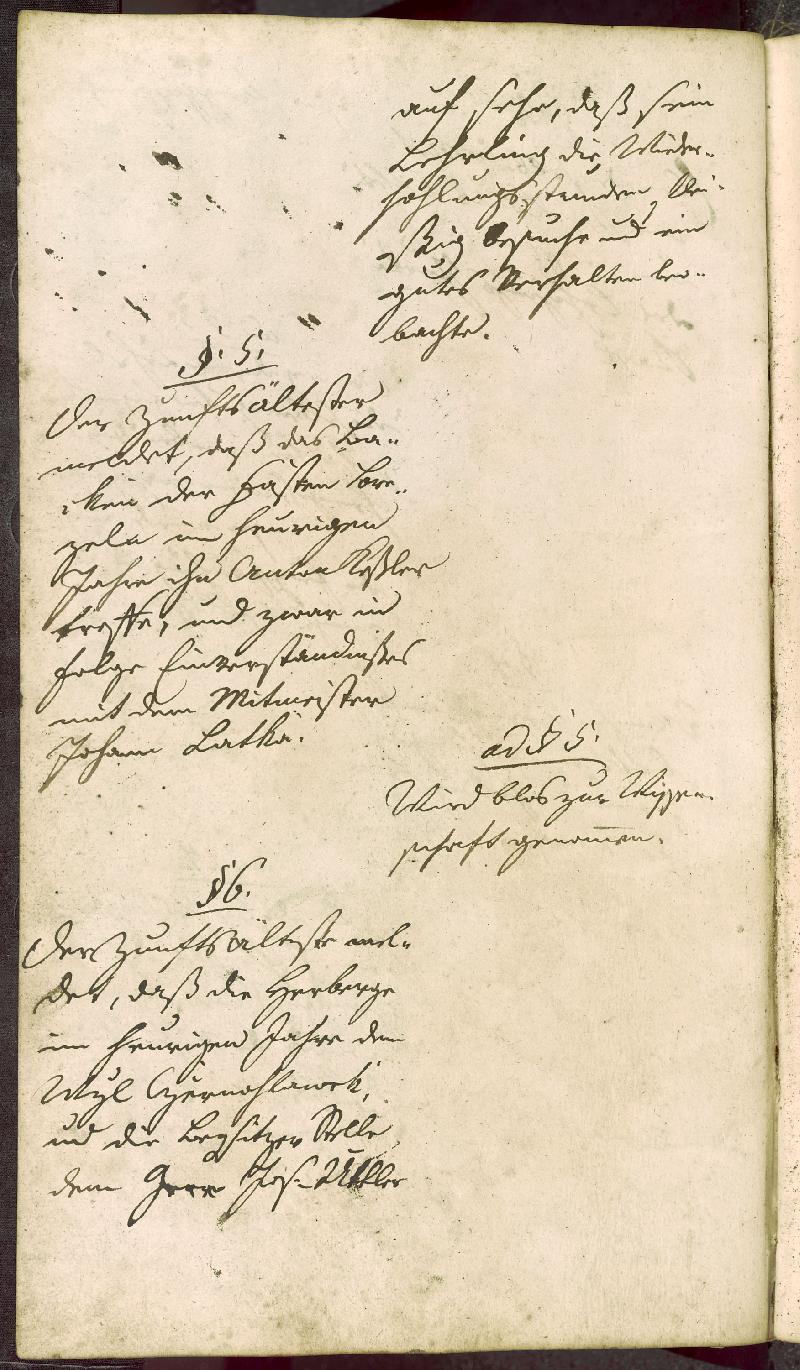 auf sehe, daß sein
Lehrling die Wieder-
hohlungsstunden flei-
ßig besuche und ein
gutes Verhalten beo-
bachte.
§. 5.
Der Zunftsältester
meldet, daß das Ba-
cken der Fasten Bre-
zeln im heurigen
Jahre ihn Anton Keßler
treffe, und zwar in
folge Einverständnißes
mit dem Mitmeister
Johann Latka.
ad § 5.
Wird blos zur Wissen-
schaft genommen.
§ 6.
Der Zunftsälteste mel-
det, daß die Herberge
im heurigen Jahre dem
Czernohlawek,
und die Beysitzer Stelle
dem Herr Jos.